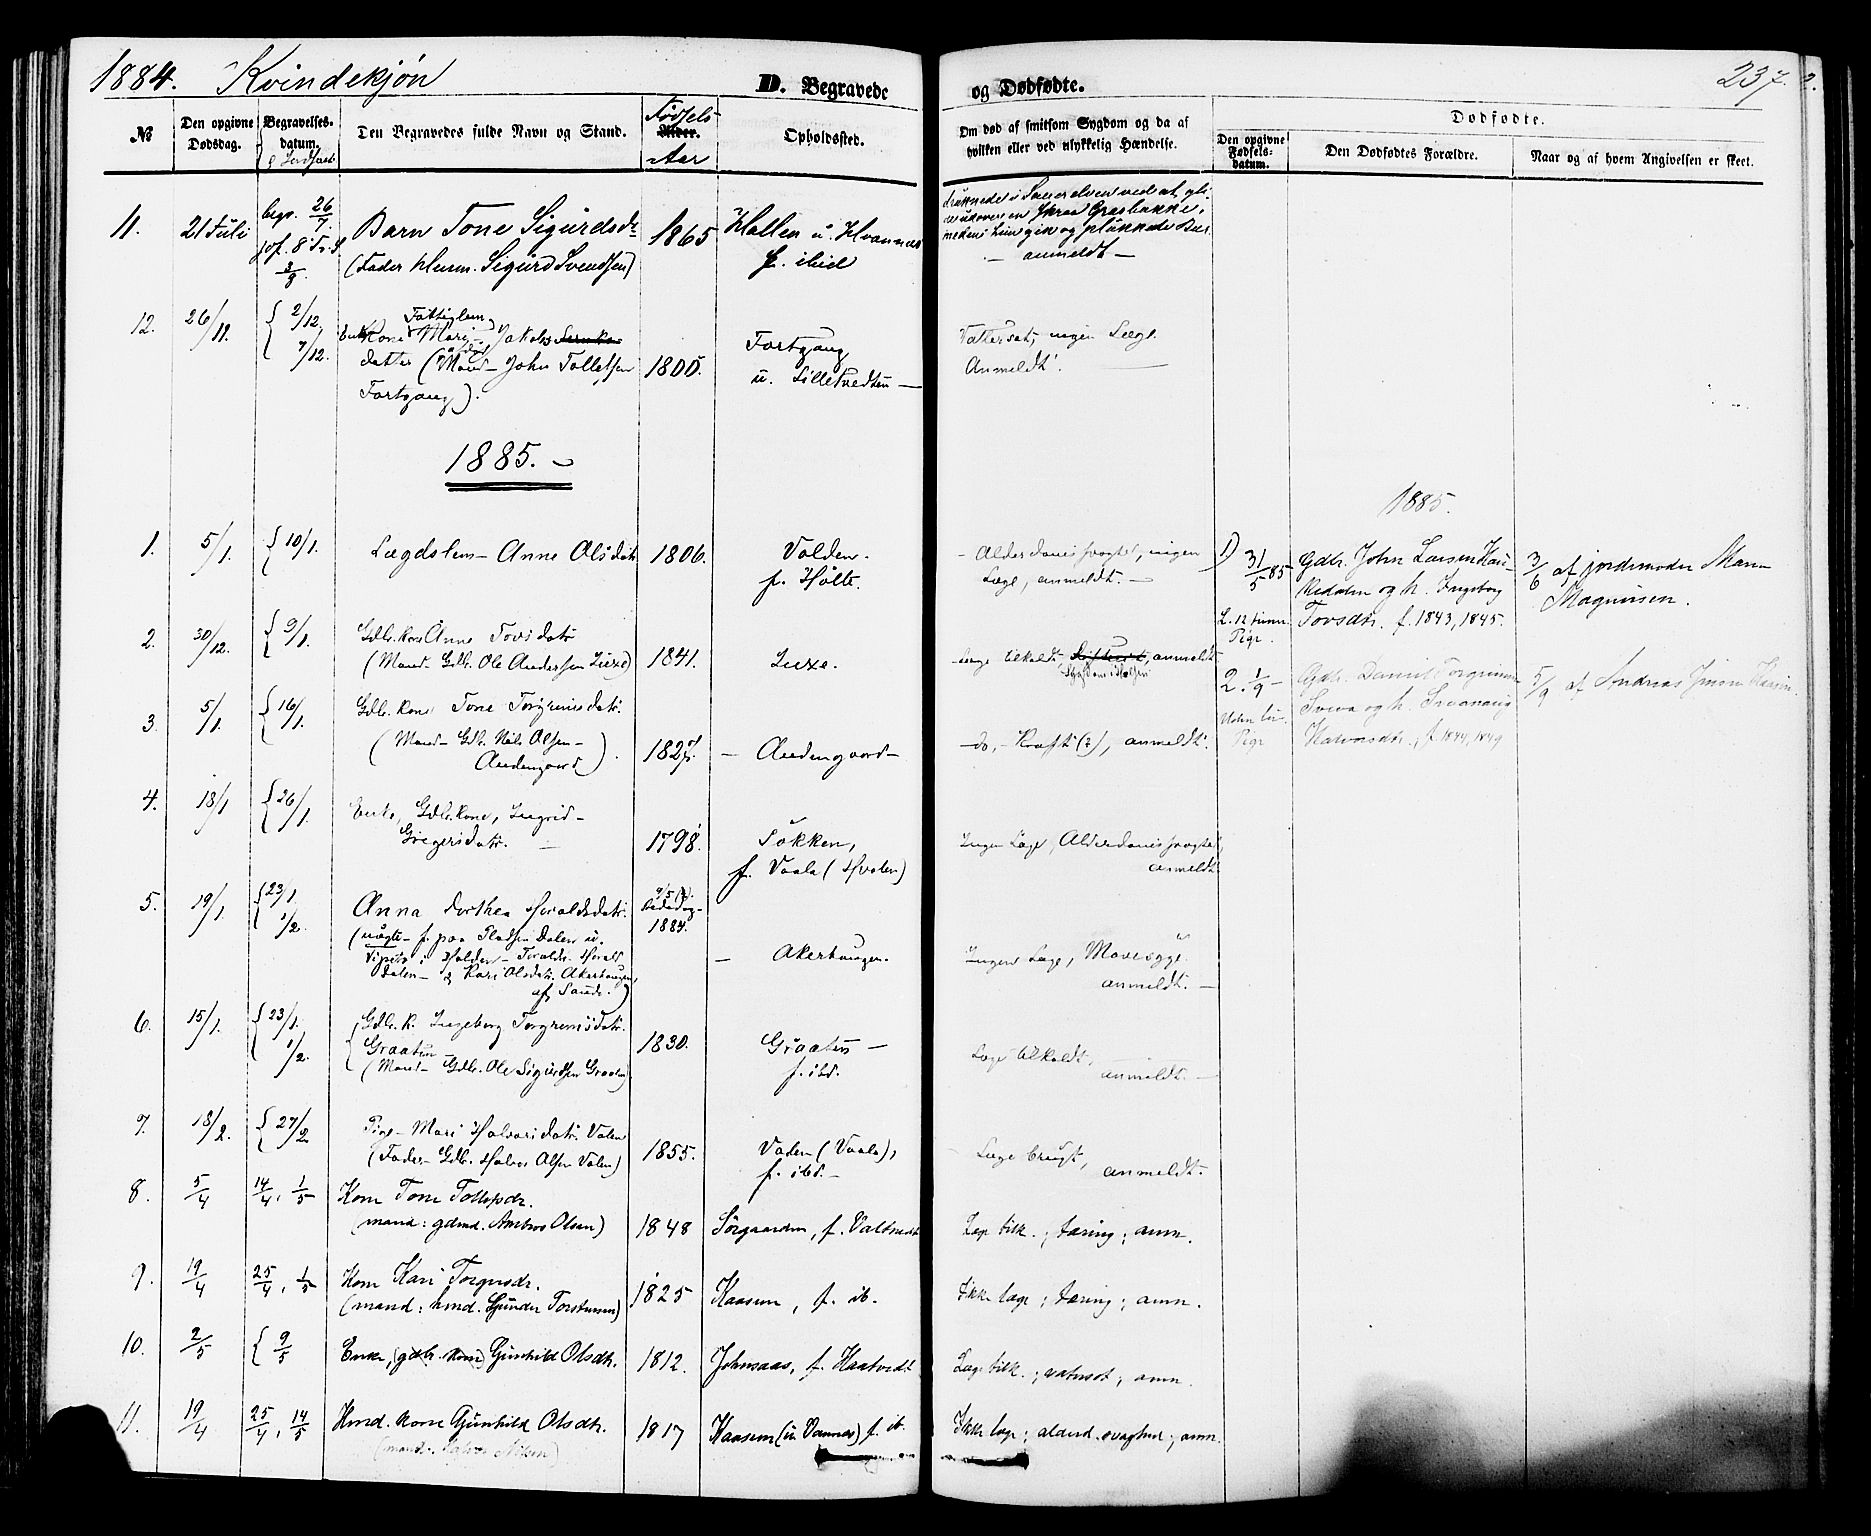 1884. Kvindekjøn
D. Begravede
og Dødfødte.
237.
№
Den opgivne Dødsdag.
Begravelses-datum.
Den Begravedes fulde Navn og Stand.
Fødsels-
Alder.
Aar
Opholdssted.
Om død af smitsom Sygdom og da af hvilken eller ved ulykkelig Hændelse.
Dødfødte.
Den opgivne Fødsels-datum.
Den Dødfødtes Forældre.
Naar og af hvem Angivelsen er skeet.
11. 21 Juli begr. 26/7 Barn Tone Sigurdsdr 1865 Hallen u. Hvannæs
jof. 8 Tr. S. 3/9. (Fader Husm. Sigurd Svendsen) f. ibid
druknede i Sauerelven ved at gli-
medens hun gik og plukkede Bær
— anmeldt —
12. 26/11. { 2/12, 7/12. Fattiglem
Enke Kone Mari Jakobs
datter (Mand John Tollefsen 1800. Fortgang
Fortgang). u. Lilletvedten —
Vattersot, ingen Læge.
Anmeldt.
1885. —
1. 5/1. { 10/1. Lægdslem — Anne Olsdatr 1806. Volden.
f. Holte.
- Alderdomssvaghed, ingen
Læge, anmeldt. —
2. 30/12. { 9/1. Gdbr. kone Anne Tovsdatr
(Mand Gdb. Ole Andersen Luxe) 1841. Luxe.
Læge tilkaldt, anmeldt
3. 5/1. { 16/1. Gdb. kone Tone Torgrimsdatr.
(Mand Gdb. Nils Olsen - 1827. — Audengaard —
Audengaard).
do, - Kræft (?), anmeldt.
4. 18/1 { 26/1. Enke, Gdbr. kone, Ingrid -
Gregersdatr. — 1798. Søkken,
f. Vaala (Holden)
Ingen Læge, Alderdomssvaghed,
anmeldt.
5. 19/1. { 23/1, 1/2. Anna Dorthea Haraldsdatr. 1884.
(uægte - f. paa Pladsen Dalen u.
Vipeto i Holden - Foraldr. Harald
Dalen - & Kari Olsdatr. Akerhaugen, — Akerhaugen.
af Saude.)
Ingen Læge, Mavesyge.
anmeldt. —
6. 15/1. { 23/1. 1/2. Gdb. k. Ingeborg Torgrimsdatr.
Graaten 1830. Graaten —
(Mand - Gdb. Ole Sigurdsen Graaten) f. ibd.
Læge tilkaldt,
anmeldt. —
7. 18/2. { 27/2 Pige - Mari Halvorsdatr. Valen
(Fader - Gdb. Halvor Olsen Valen) 1855. Vaden (Vaala),
f. ibd. —
- Læge brugt,
anmeldt.
8. 5/4 14/4, 1/5 Kone Tone Tollefsdr.
(mand: gdmd. Ambros Olsen) 1848 Sørgaarden, f. Valtvedt
Læge tilk.; tæring; anm.
9. 19/4 25/4, 1/5 Kone Kari Torgersdr.
(mand: hmd. Gunder Torstensen) 1825 Kaasen, f. ib.
Ikke læge; tæring; anm.
10. 2/5 { 9/5 Enke, (gdbr. kone) Gunhild Olsdtr. 1812. Johnsaas, f. Haatvedt
Læge tilk.; vatersot; anm.
11. 19/4 25/4, 14/5 Hmd. kone Gunhild Olsdtr. 1817 Kaasen (u. Vannæs) f. ib.
(mand: Halvor Nilsen)
Ikke læge; alderd. svaghed; anm.
1885.
1) 31/5 85 Gdbr. John Larsen Hau-
kedalen og h. Ingeborg
Tovsdtr. f. 1843, 1845.
Pige.
3/6 af jordemoder Maren
Magnussen.
2. 1/9 — Gdbr. Daniel Torgrimsen
Sveva og h.
Halvorsdtr., f. 1844, 1849
Pige
5/9 af Andreas Jensen